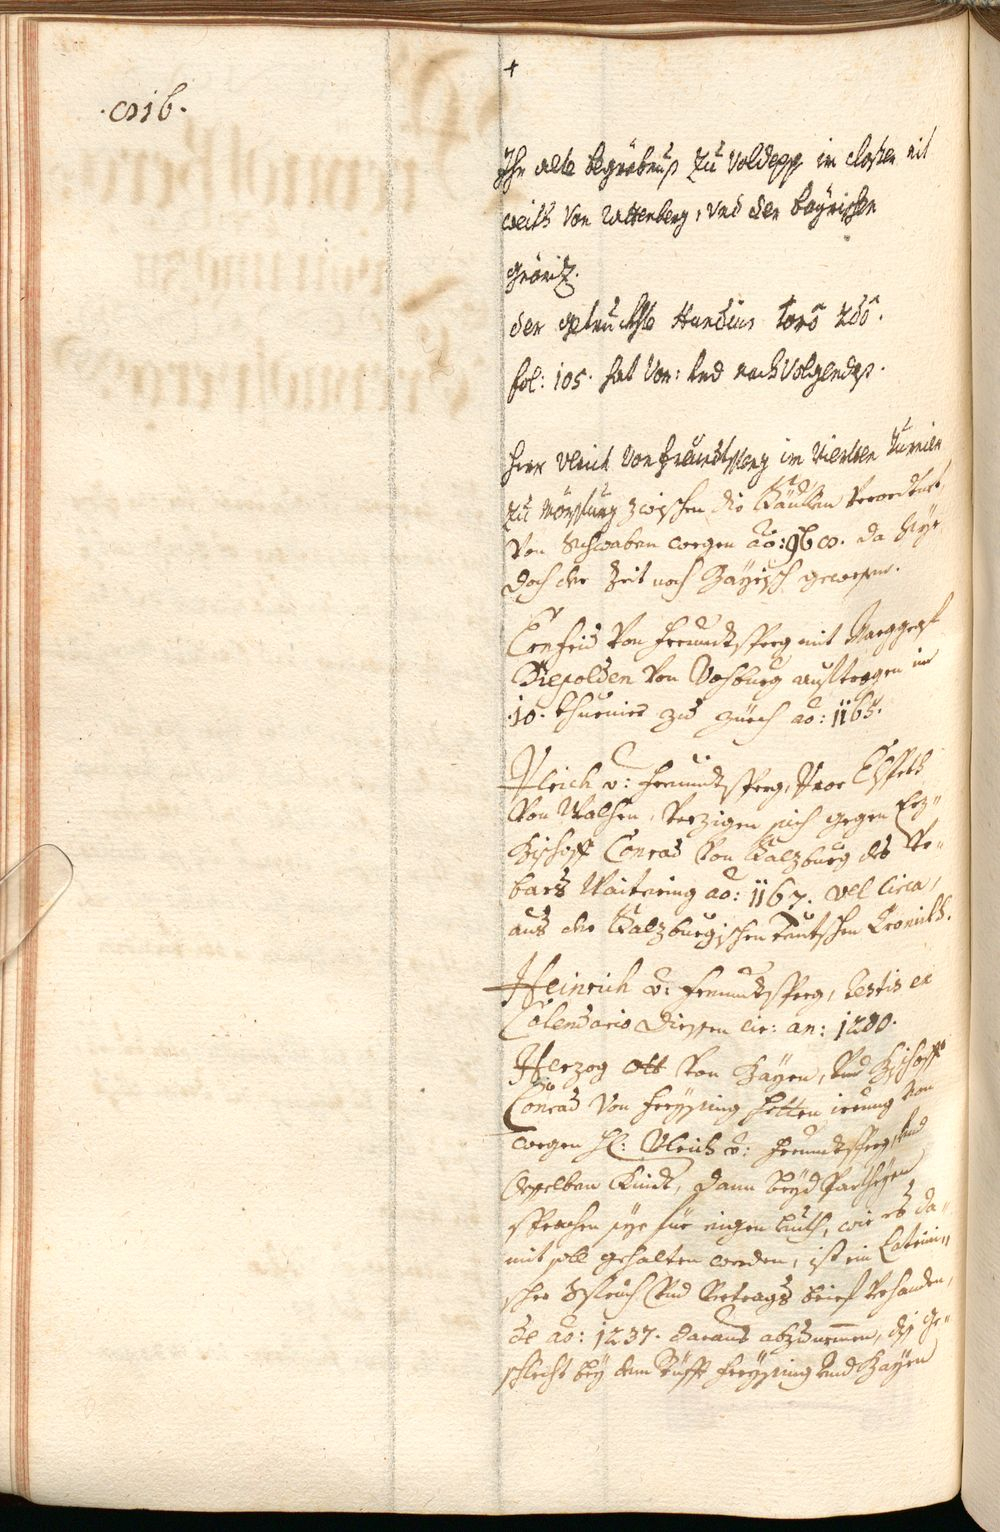 .816.
+
Ihr alte begräbnuß zu Voldepp im closter nit
weith von Rattenberg, vnd der bayrischen
gränitz.
der getruckhte Hundius tomo 2do.
fol: 105. hat vor: vnd nachvolgendes.
Herr Ulrich von freundtsperg im vierten Turnier
zu Mörspurg zwischen die Säullen verordnet
von Schwaben wegen ao: 968. da Sÿe
doch der Zeit noch Bayrisch gewesen.
Ernfrid von Freundtsperg mit Marggraf
Diepolden von Vohburg aufftragen im
.10. thurnier zu Zürch ao: 1165.
Ulrich v: Freundtsperg, Uxor Elspeth
von Walsen, verzigen sich gegen Erz„
Bischoff Conrad von Salzburg des Ur„
bars Waitering ao: 1167. vel circa,
aus der Salzburgischen teutschen Cronickh.
Heinrich v: Freundtsperg, testis ex
Calendario Diessen cir: an: 1200.
Herzog Ott von Bayrn, vnd Bischoff
Conrad von Freysing hetten irrung von
wegen H: Ulrich v: Freundtsperg, vnd
desselben Kindt, dann beyd Partheyen
sprachen sye für aigen leuth, wie es da„
mit soll gehalten werden, ist ein Lateini„
scher Spruch vnd Vertrags brief vorhanden,
de ao: 1237. daraus abzunemmen, dz ge„
schlecht bey dem Stüfft Freysing vnd Bayrn